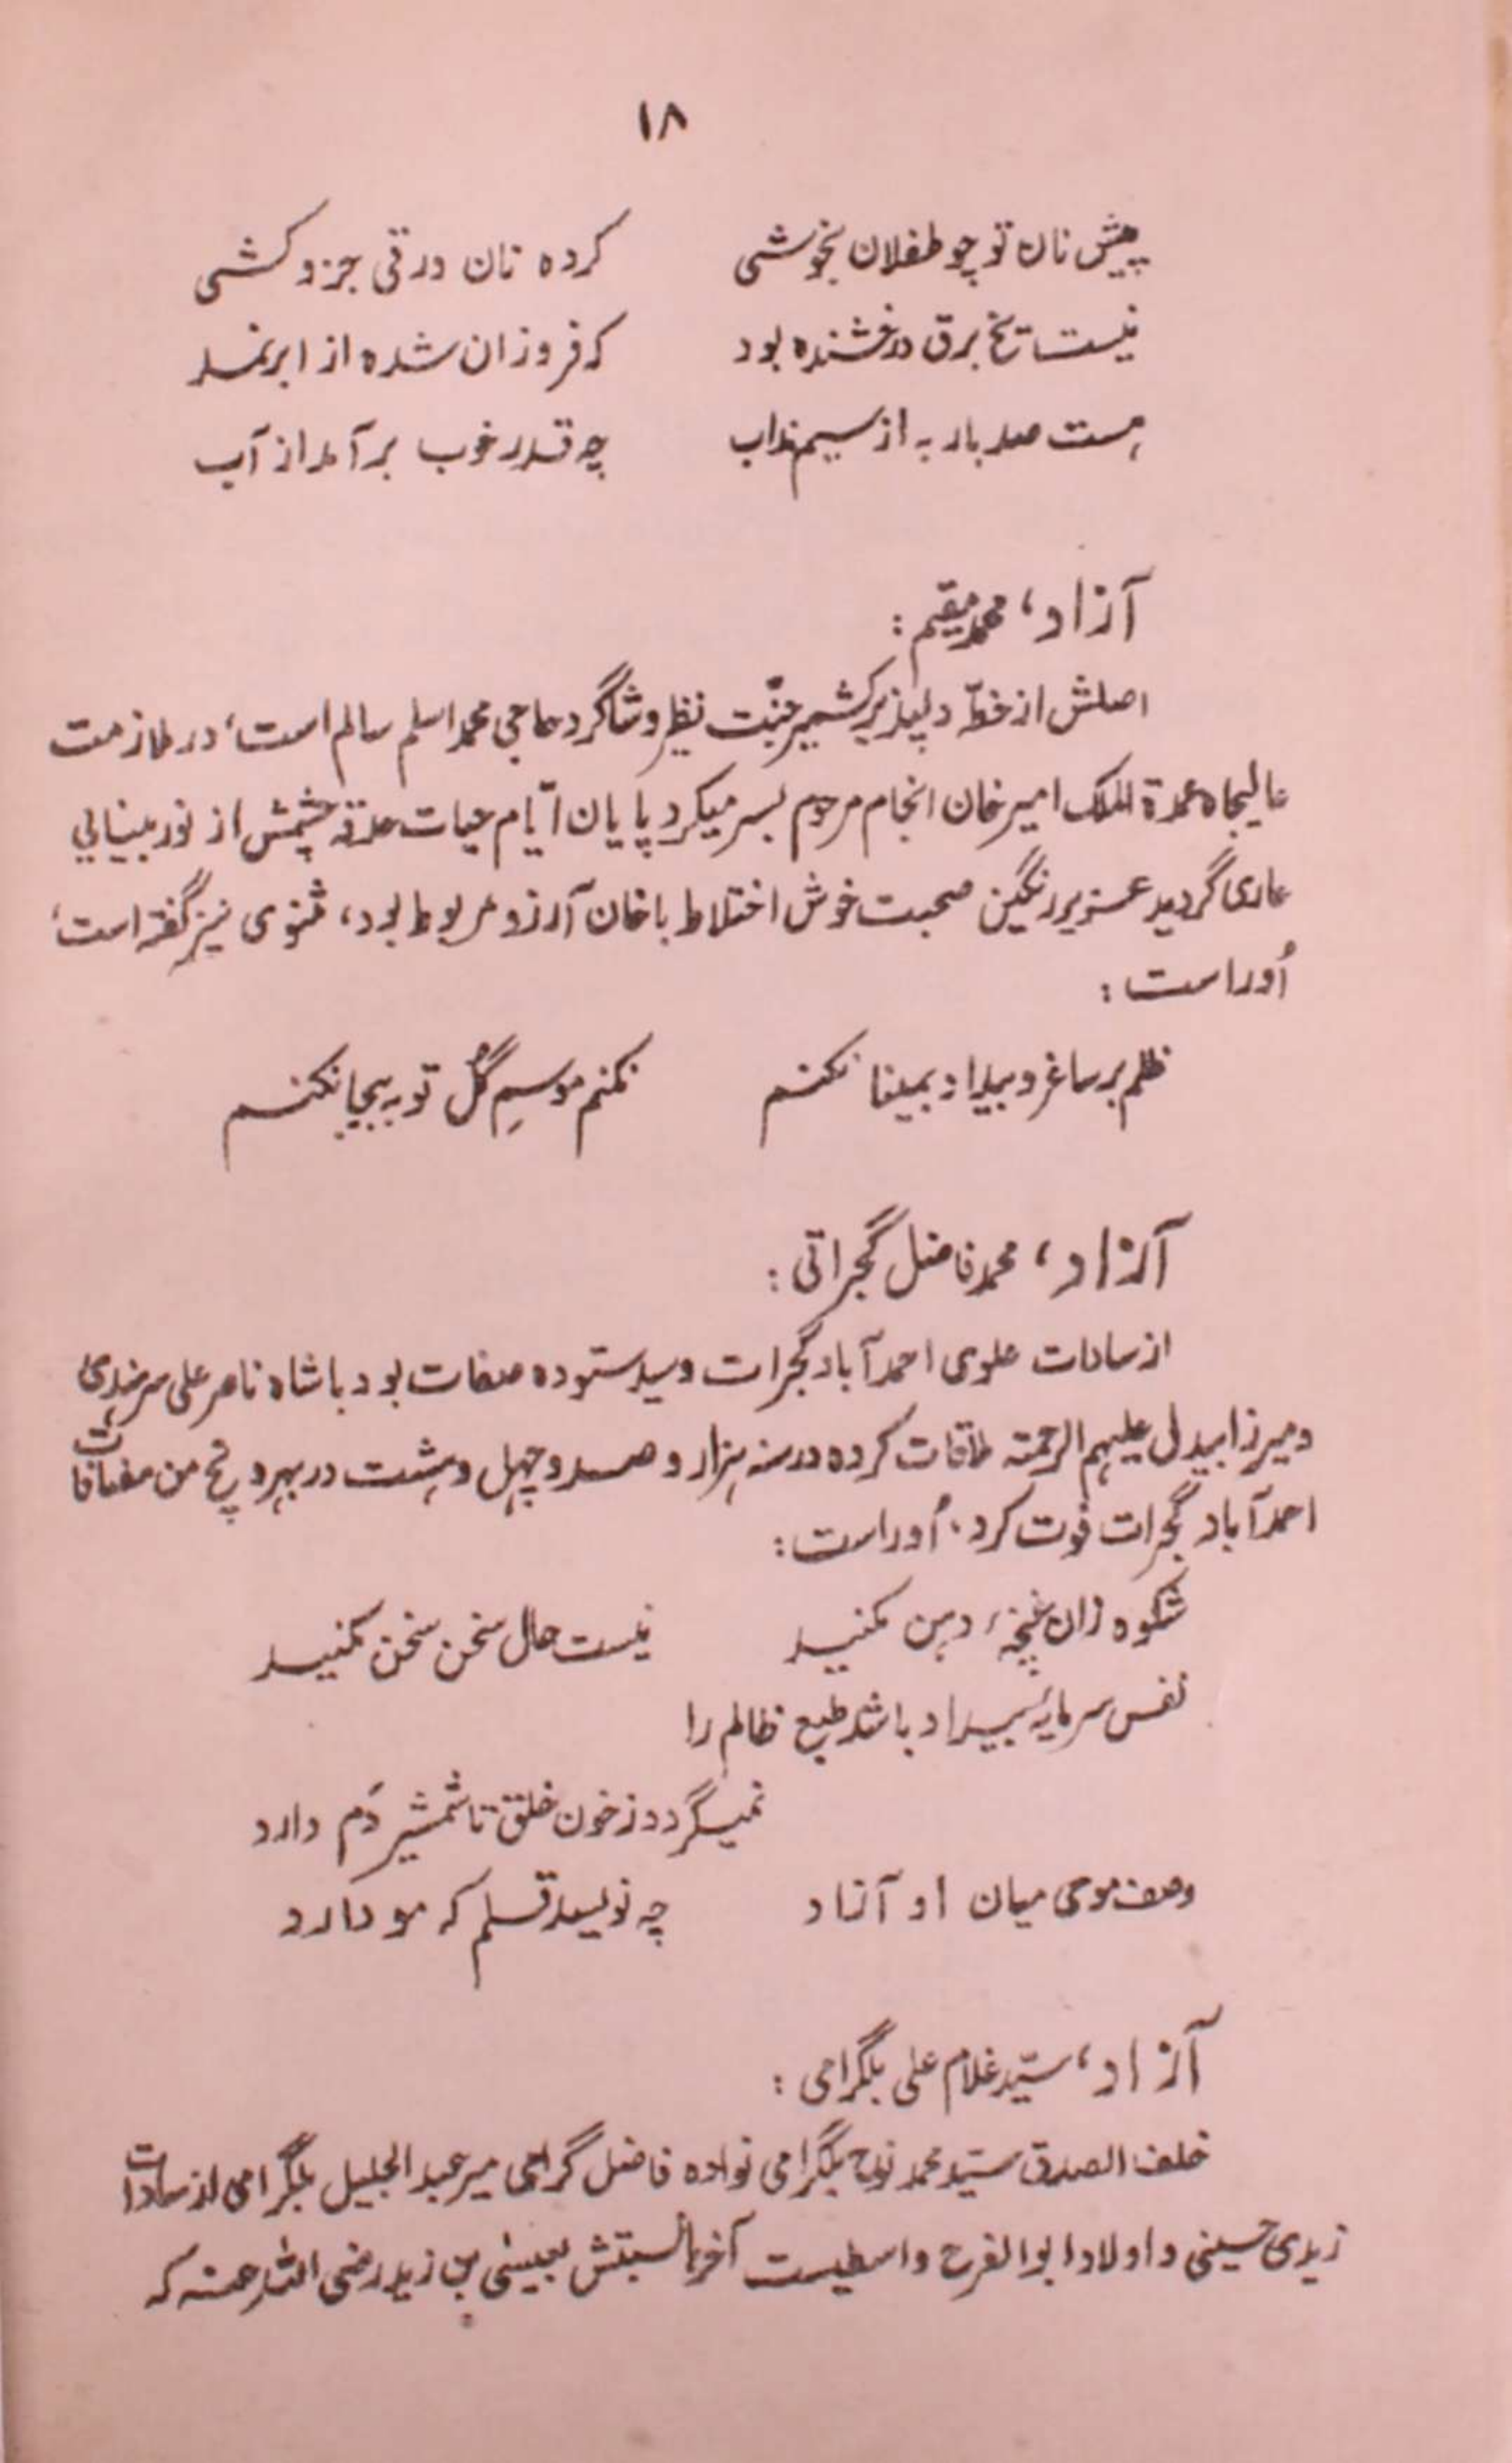 ۱۸
پیش نان تو چو طفلان بخوشی کرده نان ورقی جزو کشی
نیست یخ برق درخشنده بود که فروزان شده از ابر نمد
هست صد بار به از سیم مذاب چه قدر خوب بر آمد از آب
آزاد، محمد مقیم:
اصلش از خطّہ دلپذیر کشمیر جنّت نظیر و شاگرد حاجی محمد اسلم سالم است، در ملازمت
عالیجاه عمدة الملک امیر خان انجام مرحوم بسر میکرد پایان ایّام حیات حدقہ چشمش از نور بینایی
عاری گردید عزیز رنگین صحبت خوش اختلاط با خان آرزو مربوط بود، مثنوی نیز گفته است،
اُوراست:
ظلم بر ساغر و بیداد بمینا نکنم نکنم موسمِ گُل توبہ بیجا نکنم
آزاد، محمد فاضل گجراتی:
از سادات علوی احمد آباد گجرات و سید ستوده صفات بود با شاه ناصر علی سرہندی
و میرزا بیدل علیہم الرحمتہ ملاقات کرده در سنہ ہزار و صد و چہل و ہشت در بہروچ من مضافات
احمد آباد گجرات فوت کرد. اُوراست:
شکوه زان غنچہٴ دہن مکنید نیست حال سخن سخن مکنید
نفس سرمایہٴ بیداد باشد طبع ظالم را
نمیگردد ز خون خلق تا شمشیر دَم دارد
وصف موی میان او آزاد چہ نویسد قلم کہ مو دارد
آزاد، سیّد غلام علی بلگرامی:
خلف الصدق سیّد محمد نوح بلگرامی نواده فاضل گرامی میر عبد الجلیل بلگرامی از سادات
زیدی حسینی و اولاد ابو الفرح واسطیست آخرہا نسبتش بعیسی بن زید رضی اللہ عنہ کہ